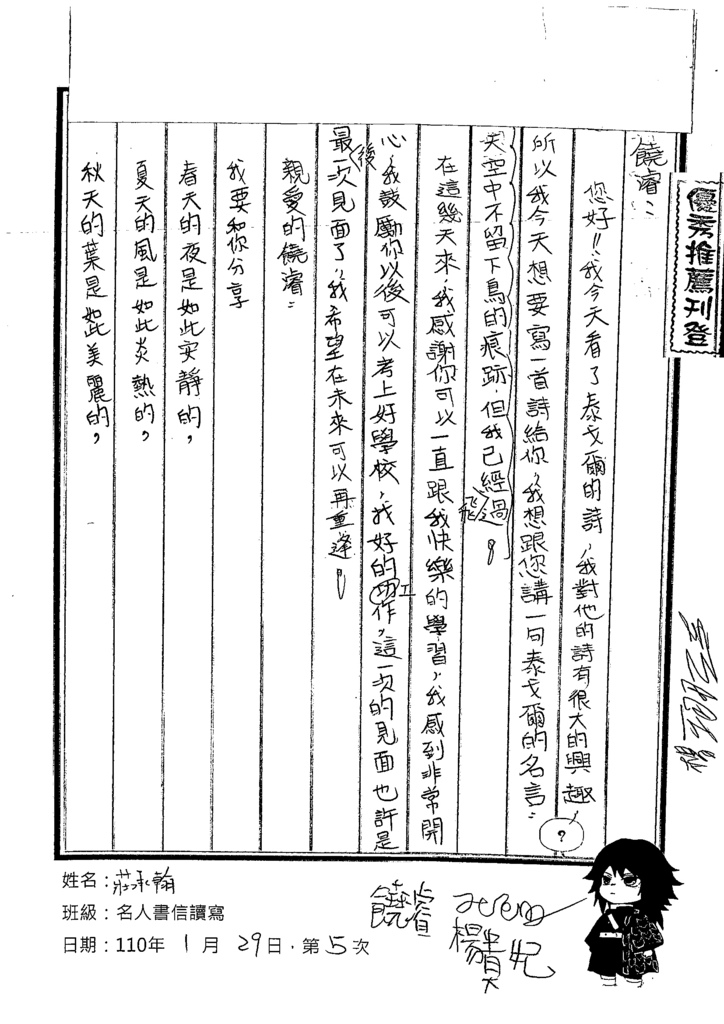 優秀推薦刊登
饒濬：
您好！！我今天看了泰戈爾的詩，我對他的詩有很大的興趣，
所以我今天想要寫一首詩給你，我想跟您講一句泰戈爾的名言：
天空中不留下鳥的痕跡，但我已經過。
飛
在這幾天來，我感謝你可以一直跟我快樂的學習，我感到非常開
心，我鼓勵你以後可以考上好學校，找好的功作，這一次的見面也許是
工
最一次見面了，我希望在未來可以再重逢！
後
親愛的饒濬：
我要和你分享
春天的夜是如此安靜的，
夏天的風是如此炎熱的，
秋天的葉是如此美麗的，
？
姓名：莊承翰
班級：名人書信讀寫
日期：110年 1月 29日，第 5 次
饒睿
楊貴妃